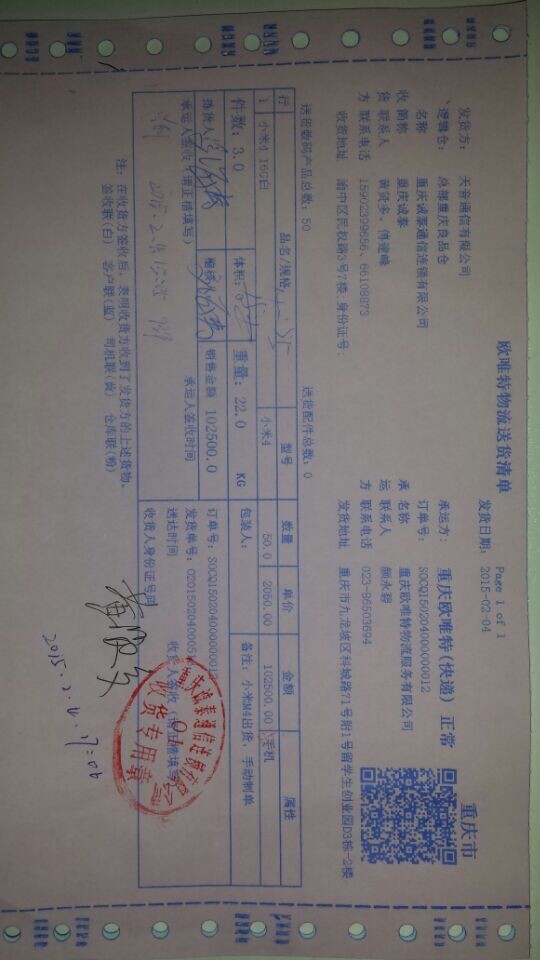 欧唯特物流送货清单
Page 1 of 1
发货日期: 2015-02-04
重庆市
发货方: 天音通信有限公司
承运方: 重庆欧唯特(快递) 正常
逻辑仓: 总部重庆良品仓
订单号: SOCQ150204000000012
收货方
名称 重庆诚泰通信连锁有限公司
简称 重庆诚泰
联系人
联系电话 15902399656、66108873
收货地址 渝中区民权路3号7楼,身份证号:
承运方
名称 重庆欧唯特物流服务有限公司
联系人 颜永碧
联系电话 023-86503694
发货地址 重庆市九龙坡区科城路71号附1号留学生创业园D3栋-2楼
送货数码产品总数: 50
送货配件总数: 0
行 品名/规格 型号 数量 单价 金额 属性
1 小米4 16G白 小米4 50.0 2050.00 102500.00 手机
件数: 3.0 体积: 重量: 22.0 KG 包装人: 备注: 小米M4出货, 手动制单
拣货人 销售金额 102500.0
订单号: SOCQ150204000000012
承运人签收(请正楷填写) 承运人签收时间
2015.2.4 15:25
送达时间 收货人签收(请正楷填写)
收货人身份证号码
收货专用章
2015.2.4. 17:06
注: 在收货方签收后, 表明收货方收到了发货方的上述货物。
签收联(白) 客户联(蓝) 司机联(黄) 仓库联(粉)